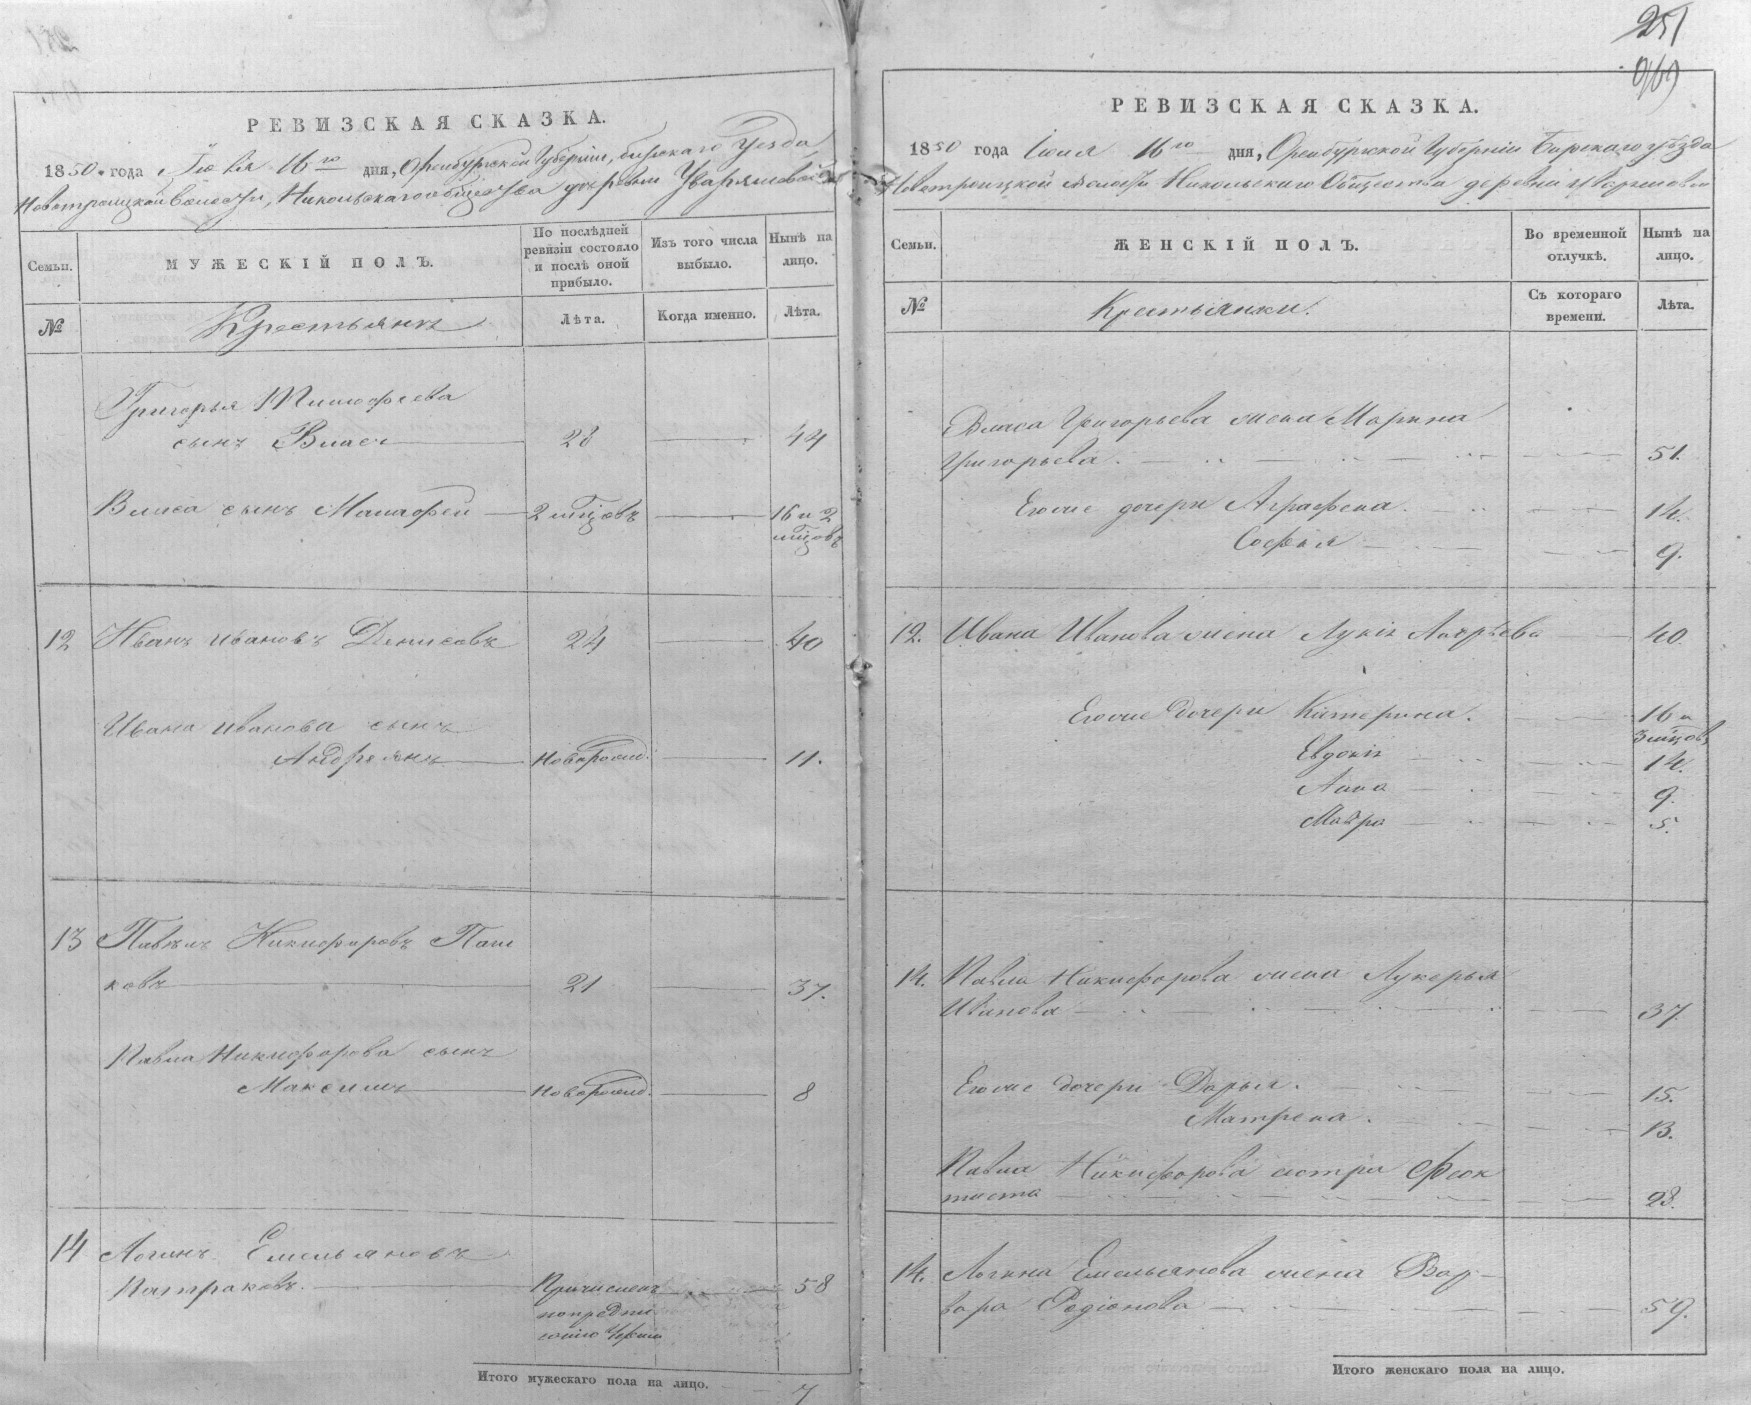 РЕВИЗСКАЯ СКАЗКА.
1850 года Июля 16го дня, Оренбургской Губернии, бирскаго Уезда
Новотроицкой Волости, Никольскаго общества деревни
Семьи.
МУЖЕСКІЙ ПОЛЪ.
По послѣдней ревизіи состояло и послѣ оной прибыло.
Изъ того числа выбыло.
Нынѣ на лицо.
№
Крестьянъ
Лѣта.
Когда именно.
Лѣта.
Григорья Тимофеева
сынъ Власъ 28 44
Власа сынъ Тимофей 2 мѣсцовъ 16 и 2
мѣсцовъ
12 Иванъ Ивановъ Денисовъ 24 40
Ивана Иванова сынъ
Андреянъ новорожд. 11.
13 Павелъ Никифоровъ Паш
ковъ 21 37.
Павла Никифорова сынъ
Максимъ новорожд. 8
14 Логинъ Емельяновъ
Патраковъ. Причисленъ 58
по предпи
Итого мужескаго пола на лицо. 7
251
РЕВИЗСКАЯ СКАЗКА.
1850 года Июля 16го дня, Оренбургской Губерніи Бирскаго уѣзда
Новотроицкой волости Никольскаго Общества деревни
Семьи.
ЖЕНСКІЙ ПОЛЪ.
Во временной отлучкѣ.
Нынѣ на лицо.
№
Крестьянки.
Съ котораго времени.
Лѣта.
Власа Григорьева жена Марина
Григорьева. 51.
Ево же дочери Аграфена. 14.
Софья 9.
12. Ивана Иванова жена 40
Ево же дочери Катерина. 16 и
3 мѣцовъ
Евдокія 14.
Анна 9.
Мавра 5.
14. Павла Никифорова жена Лукерья
Иванова 37
Ево же дочери Дарья. 15.
Матрена. 13.
Павла Никифорова сестра Феок
тиста 23.
14. Логина Емельянова жена Вар-
вара Родіонова 59.
Итого женскаго пола на лицо.